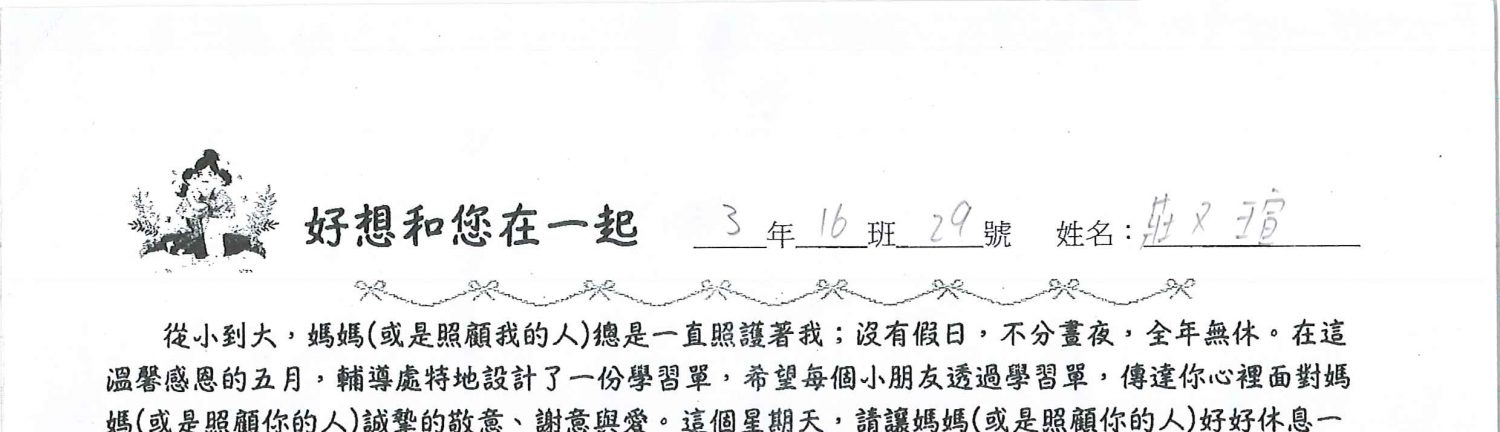 好想和您在一起 3年16班29號 姓名：莊又瑄
從小到大，媽媽(或是照顧我的人)總是一直照護著我；沒有假日，不分晝夜，全年無休。在這
溫馨感恩的五月，輔導處特地設計了一份學習單，希望每個小朋友透過學習單，傳達你心裡面對媽
媽(或是照顧你的人)誠摯的敬意、謝意與愛。這個星期天，請讓媽媽(或是照顧你的人)好好休息一